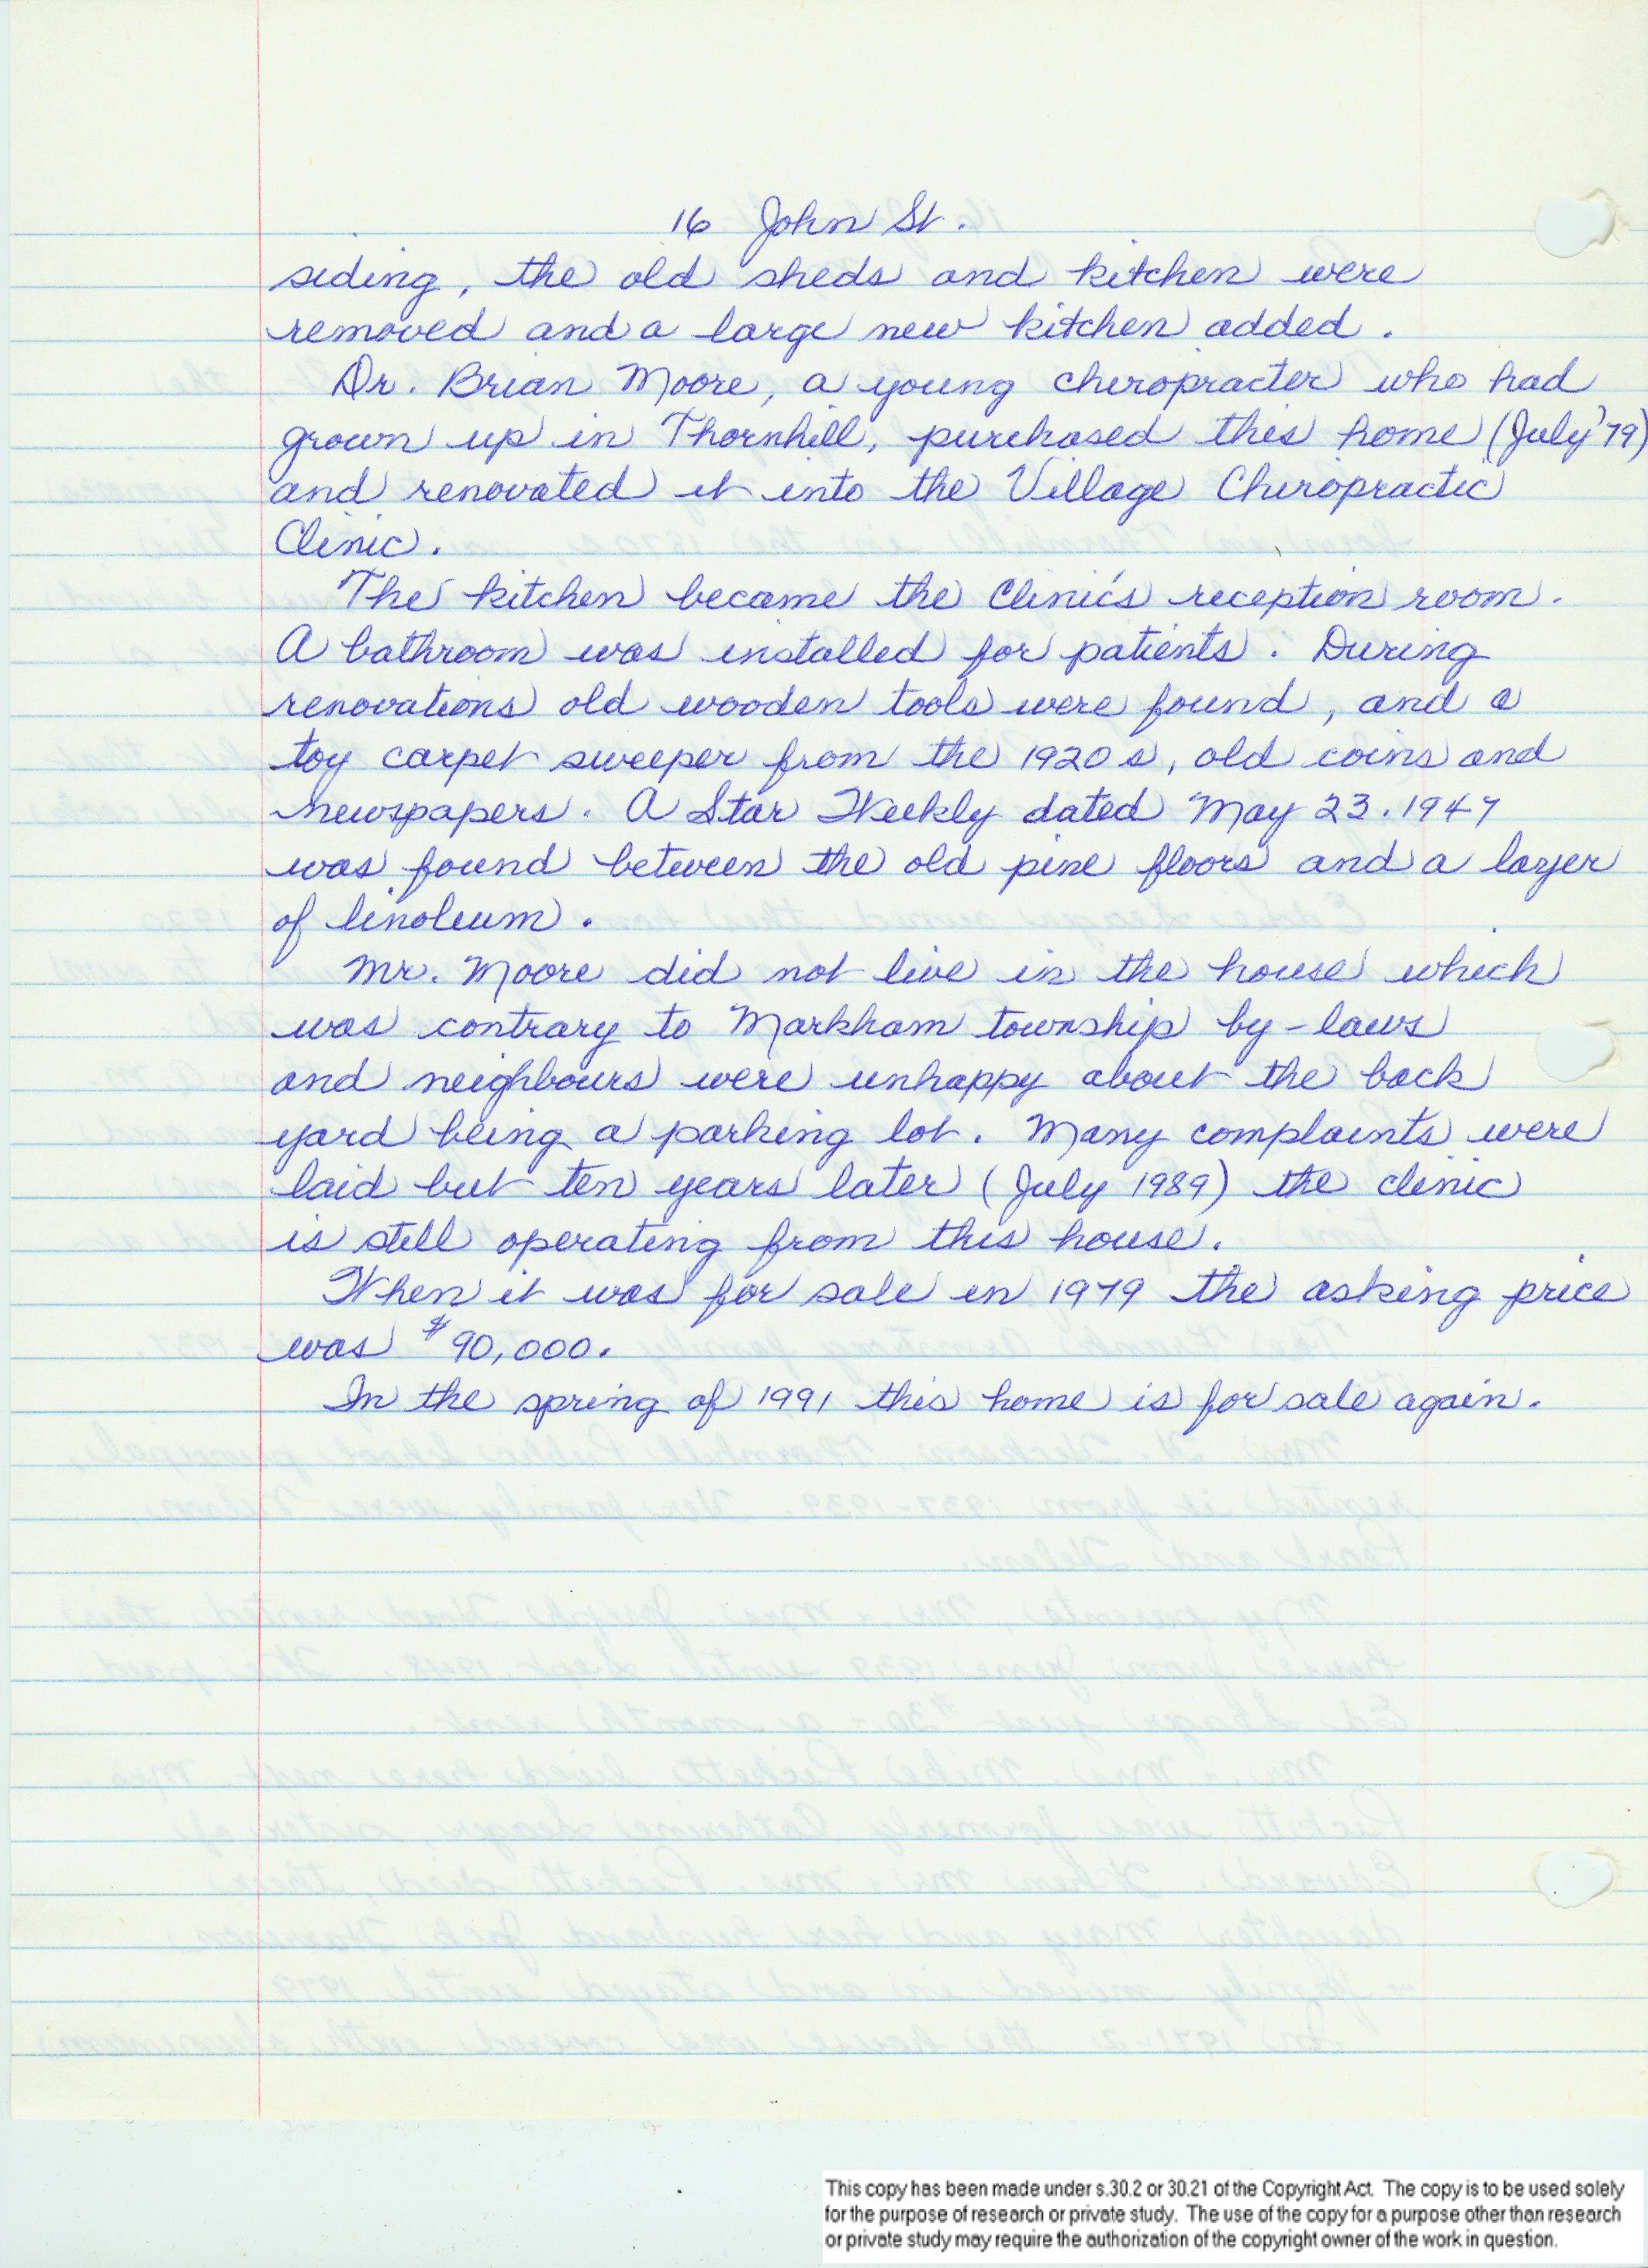 16 John St.
siding, the old sheds and kitchen were
removed and a large new kitchen added.
Dr. Brian Moore, a young chiropracter who had
grown up in Thornhill, purchased this home (July '79)
and renovated it into the Village Chiropractic
Clinic.
The kitchen became the Clinic's reception room.
A bathroom was installed for patients. During
renovations old wooden tools were found, and a
toy carpet sweeper from the 1920s, old coins and
newspapers. A Star Weekly dated May 23. 1947
was found between the old pine floors and a layer
of linoleum.
Mr. Moore did not live in the house which
was contrary to Markham township by-laws
and neighbours were unhappy about the back
yard being a parking lot. Many complaints were
laid but ten years later (July 1989) the clinic
is still operating from this house.
When it was for sale in 1979 the asking price
was $90,000.
In the spring of 1991 this home is for sale again.
This copy has been made under s.30.2 or 30.21 of the Copyright Act. The copy is to be used solely
for the purpose of research or private study. The use of the copy for a purpose other than research
or private study may require the authorization of the copyright owner of the work in question.